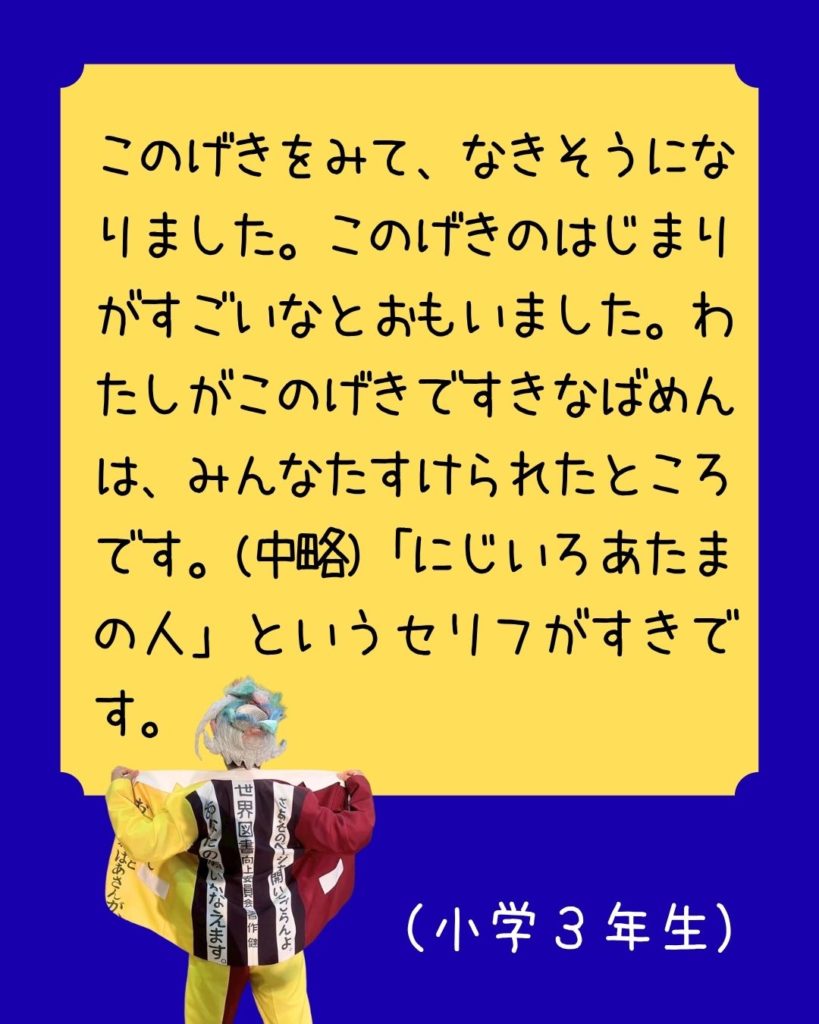 このげきをみて、なきそうにな
りました。このげきのはじまり
がすごいなとおもいました。わ
たしがこのげきですきなばめん
は、みんなたすけられたところ
です。(中略)「にじいろあたま
の人」というセリフがすきで
す。
さあそのページを開いてごらんよ。
世界図書向上委員会
あなたの願いかなえます。
ばあさんが、
(小学３年生)